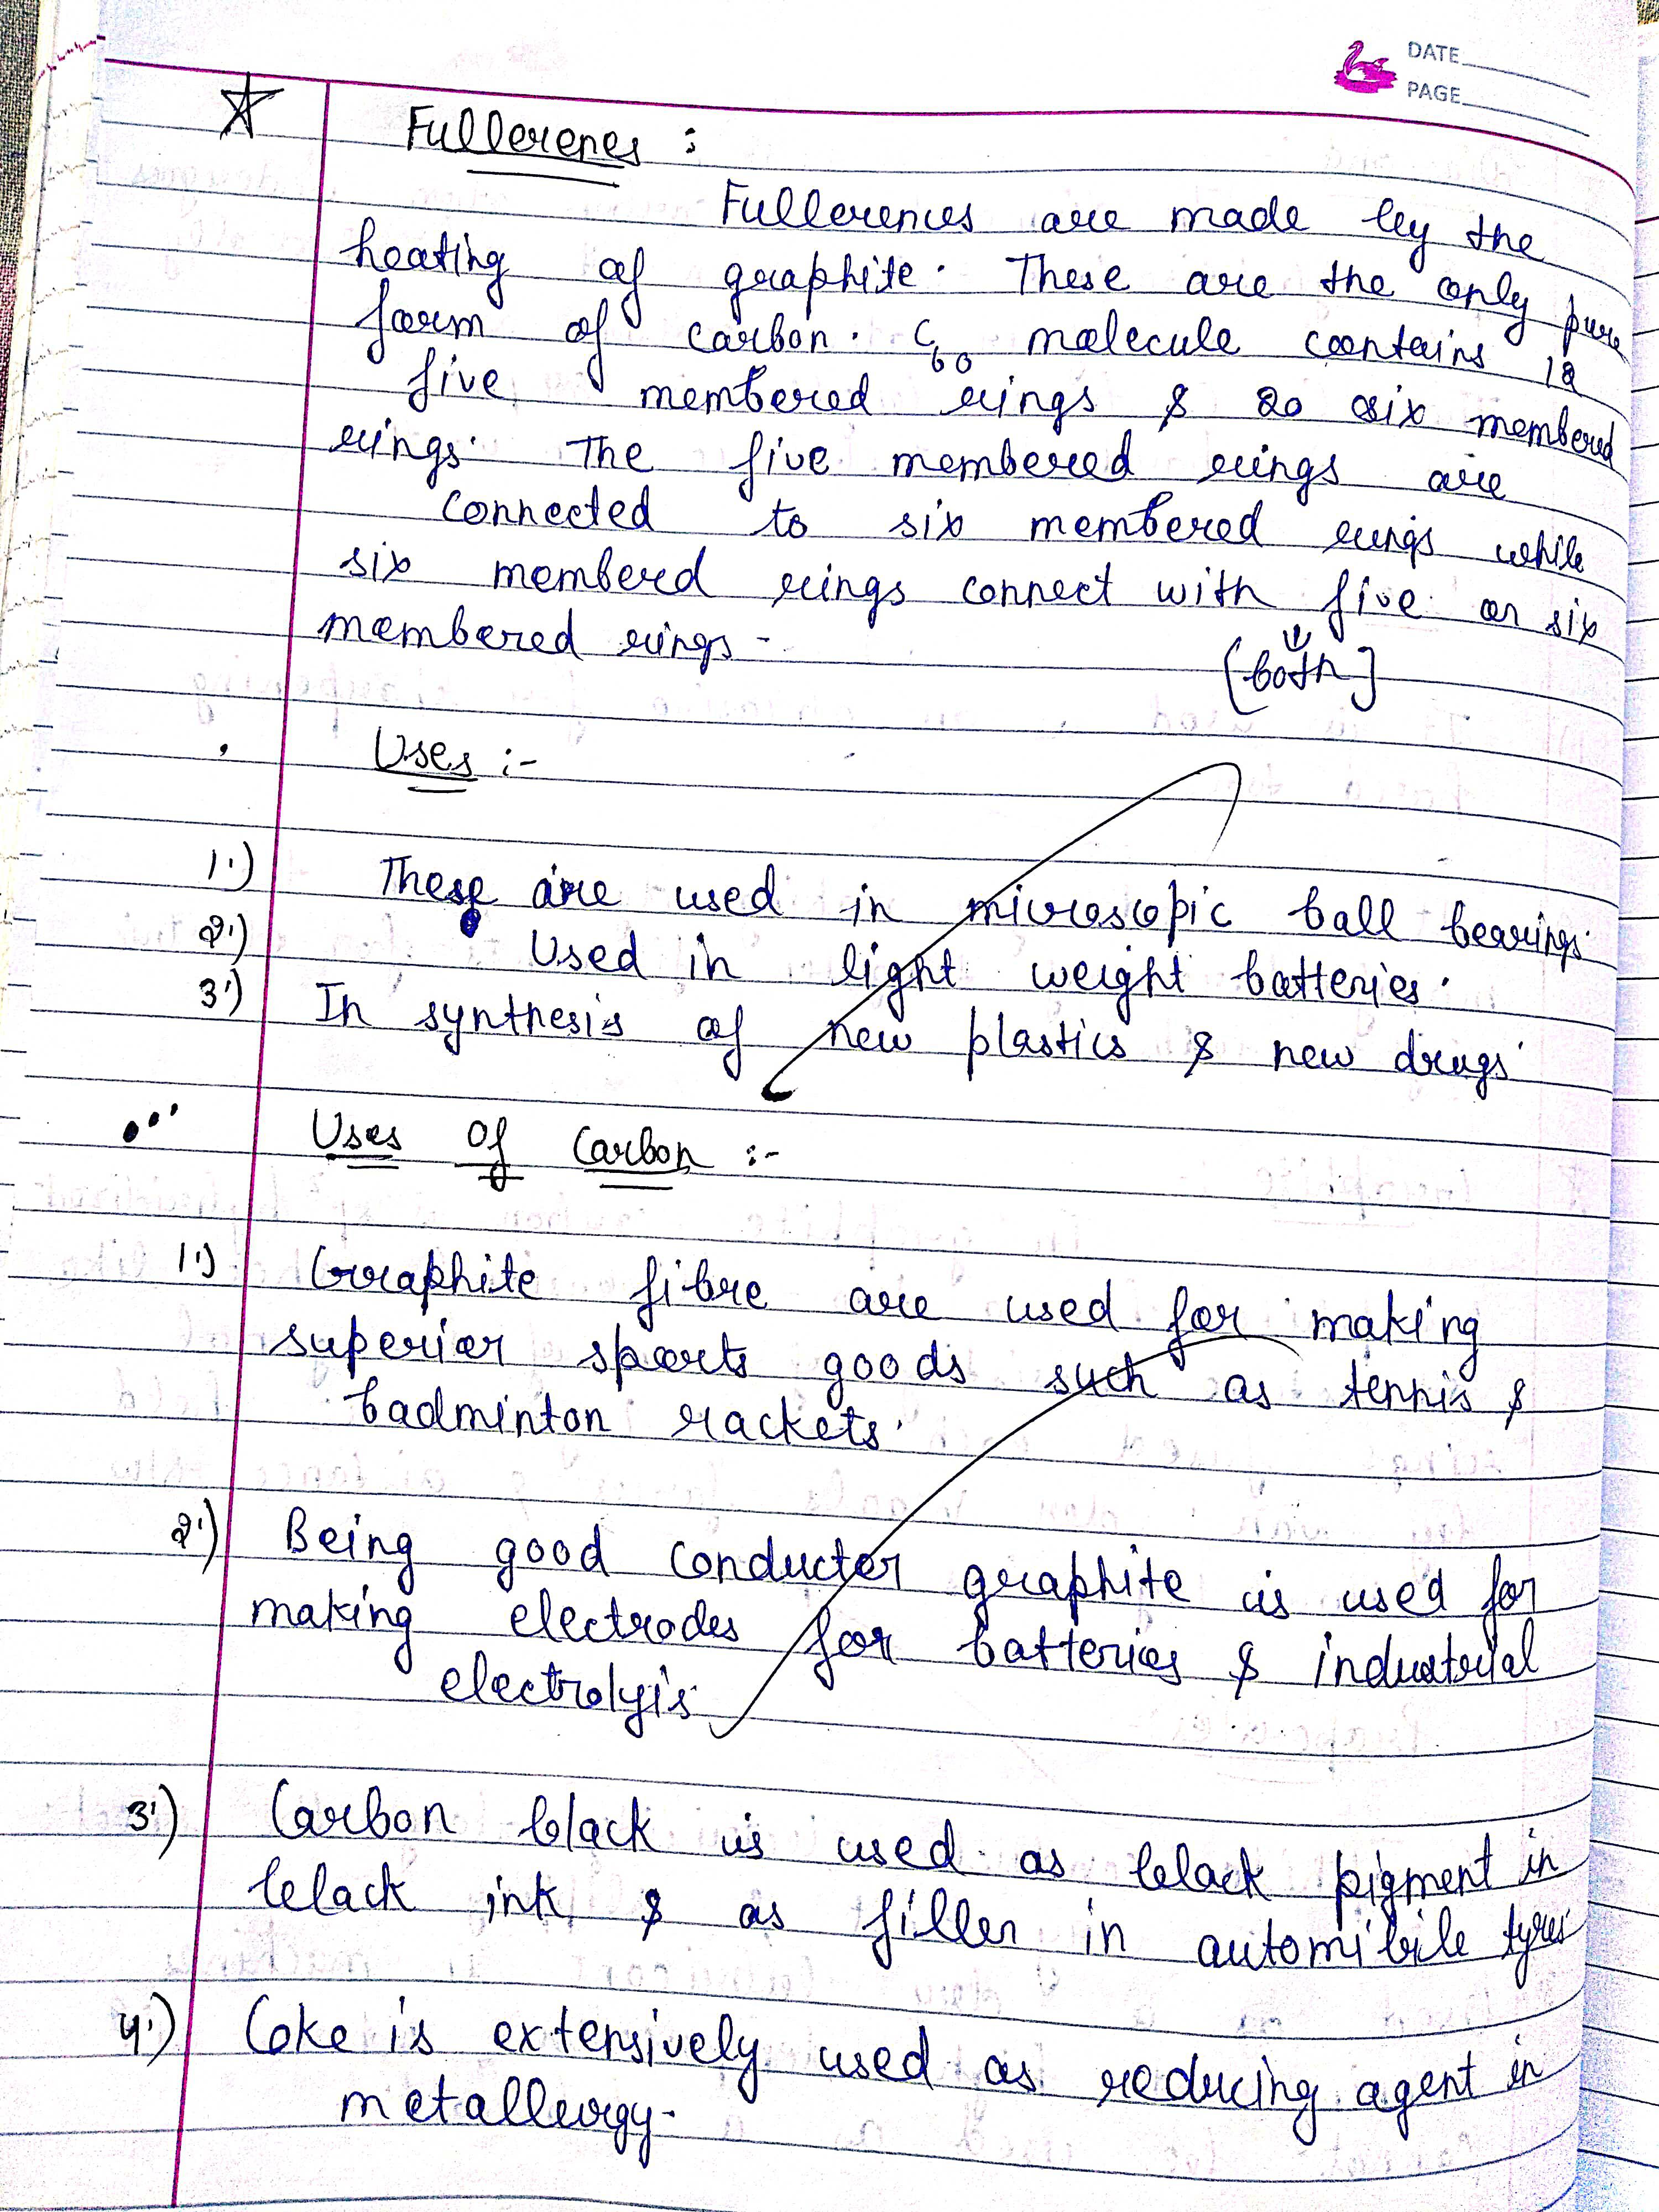 DATE
PAGE
☆ Fullerenes :
Fullerences are made by the
heating of graphite. These are the only pure
form of carbon. C60 molecule contains 12
five membered rings & 20 six membered
rings. The five membered rings are
connected to six membered rings while
six membered rings connect with five or six
membered rings.
[both]
Uses :-
1.) These are used in microscopic ball bearings.
2.) Used in light weight batteries.
3.) In synthesis of new plastics & new drugs.
Uses Of Carbon :-
1.) Graphite fibre are used for making
superior sports goods such as tennis &
badminton rackets.
2.) Being good conductor graphite is used for
making electrodes for batteries & industrial
electrolyis.
3.) Carbon black is used as black pigment in
black ink & as filler in automibile tyres.
4.) Coke is extensively used as reducing agent in
metallurgy.